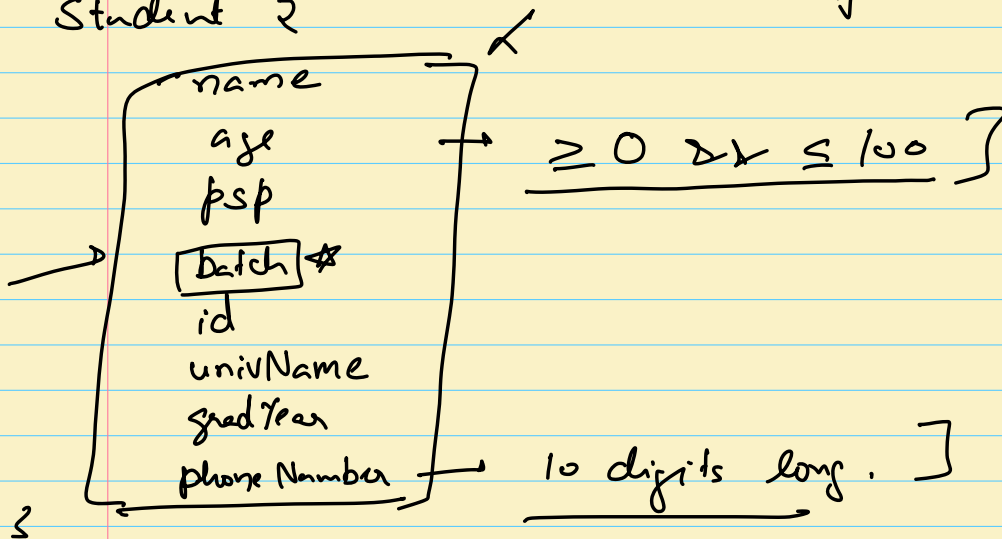 Student {
name
age → ≥ 0 && ≤ 100 ]
psp
batch ☆
id
univName
gradYear
phoneNumber → 10 digits long. ]
}